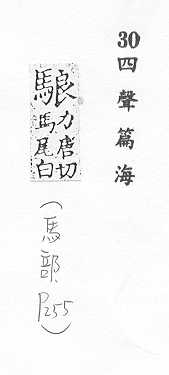 30四聲篇海
駺力唐切
馬尾白
（馬部P255）